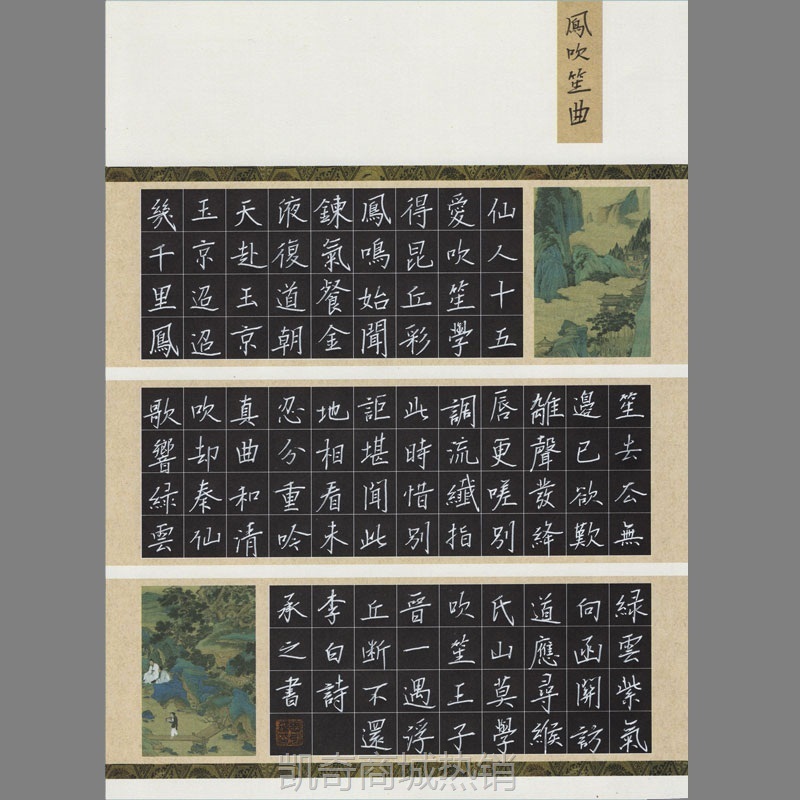 鳳吹笙曲
仙人十五
愛吹笙學
得昆丘彩
鳳鳴始聞
鍊氣餐金
液復道朝
天赴玉京
玉京迢迢
幾千里鳳
笙去去無
邊已欲歎
離聲發絳
唇更嗟別
調流纖指
此時惜別
詎堪聞此
地相看未
忍分重吟
真曲和清
吹却奏仙
歌響綠雲
綠雲紫氣
向函關訪
道應尋緱
氏山莫學
吹笙王子
晉一遇浮
丘斷不還
李白詩
承之書
凯奇商城热销